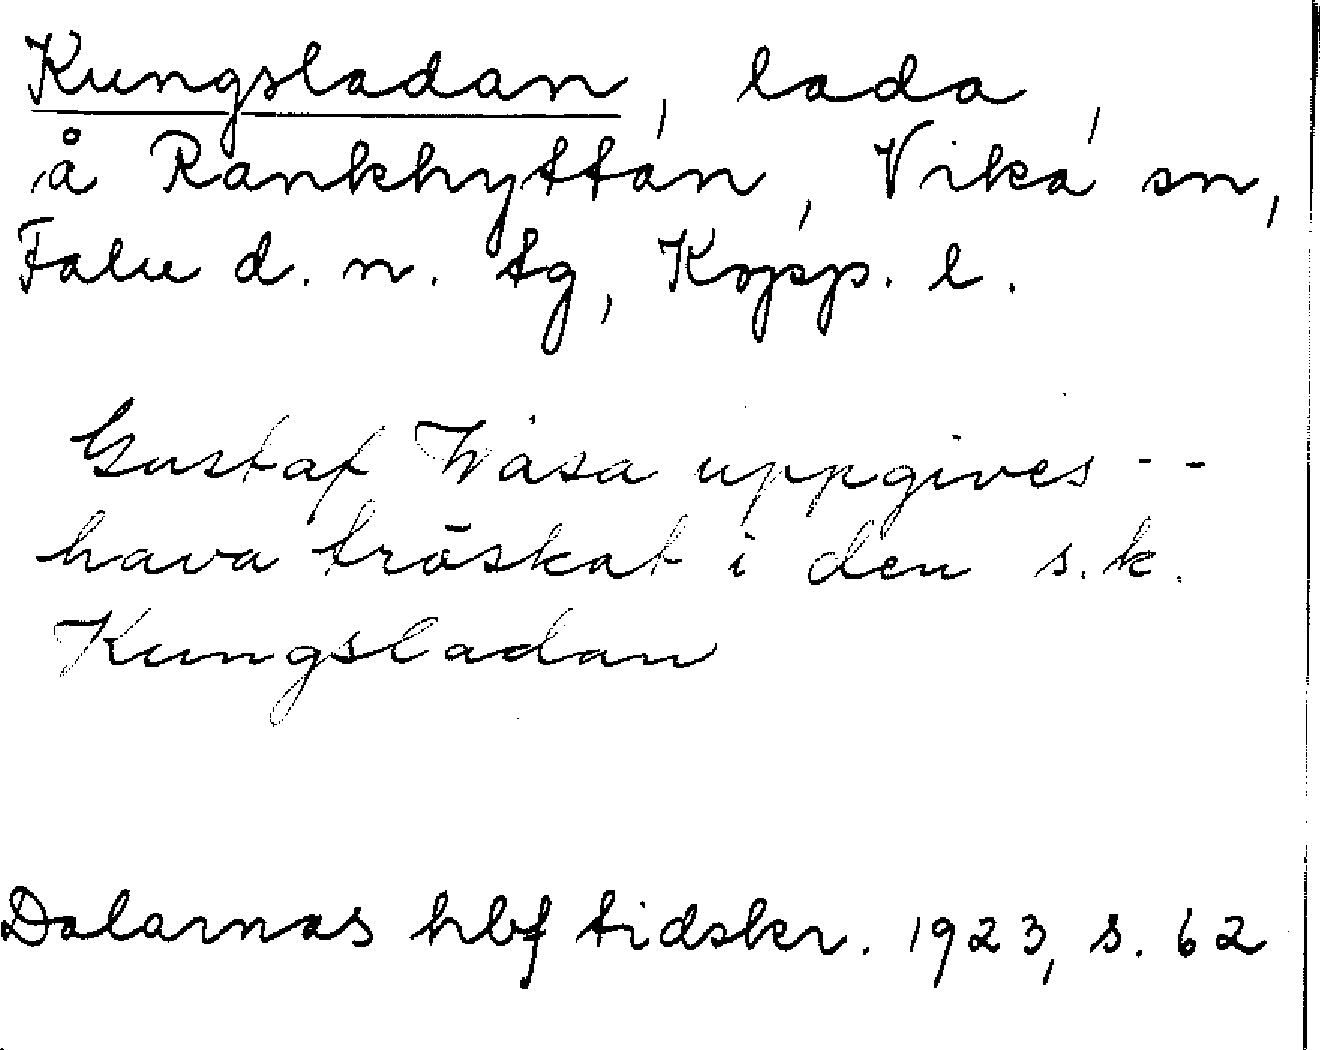 Kungsladan, lada,
å Rankhyttan, Vika sn,
Falu d. n. tg, Kopp. l.
Gustaf Wasa uppgives - -
hava tröskat i den s.k.
Kungsladan
Dalarnas hbf tidskr. 1923, s. 62